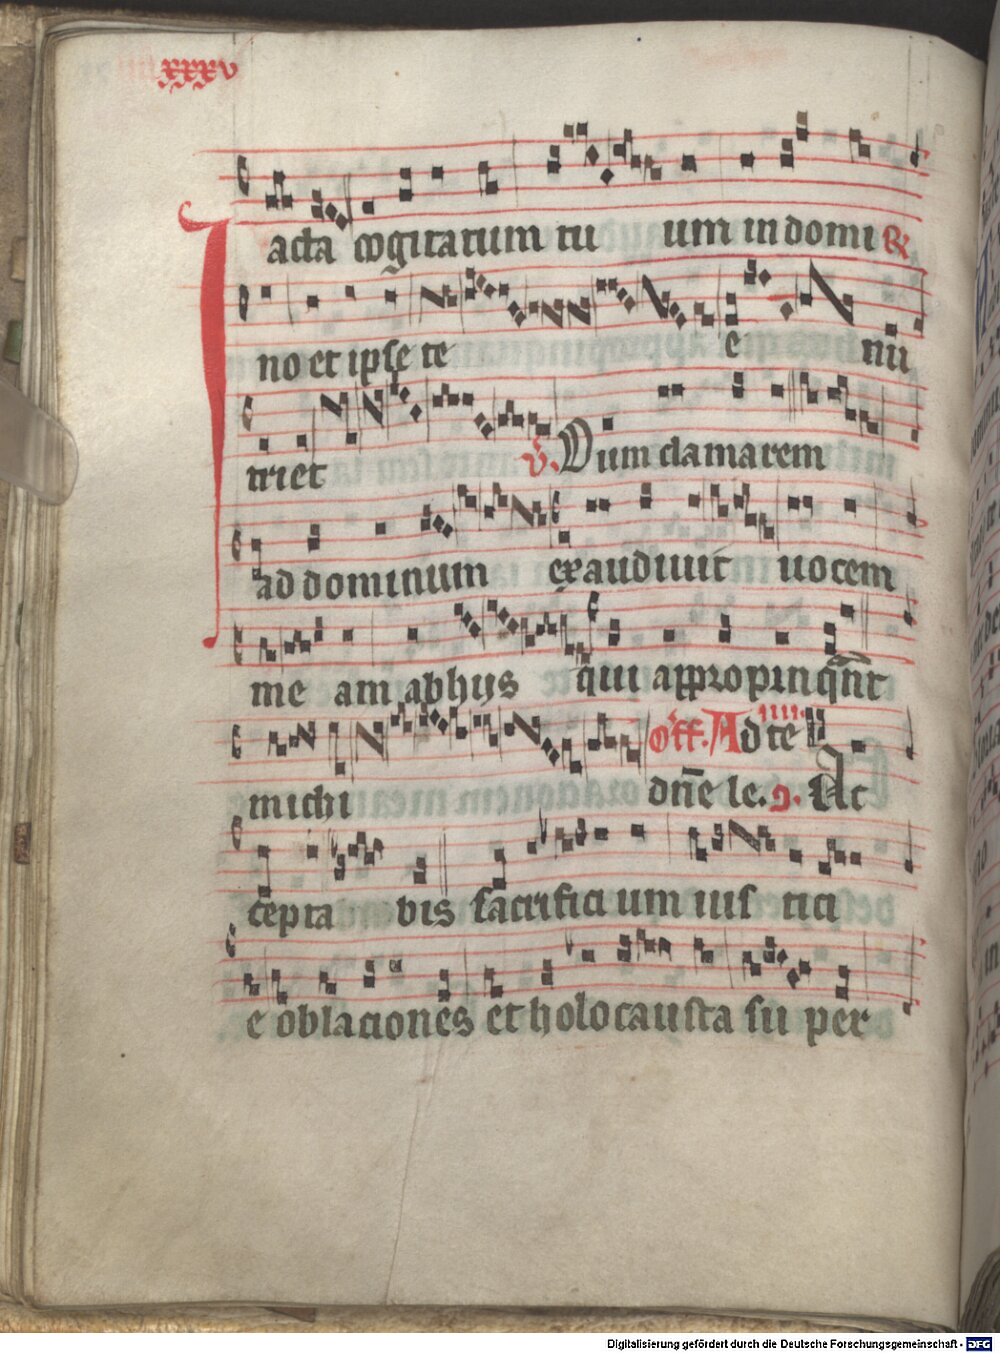 xxxv
Iacta cogitatum tu um in domi R
no et ipse te e nu
triet V. Dum clamarem
ad dominum exaudiuit uocem
me am ab hijs qui appropinqn̄t
michi off. Ad te iiii. dn̄e le. Ac
cepta bis sacrifici um ius tici
e oblaciones et holocausta su per
Digitalisierung gefördert durch die Deutsche Forschungsgemeinschaft - DFG